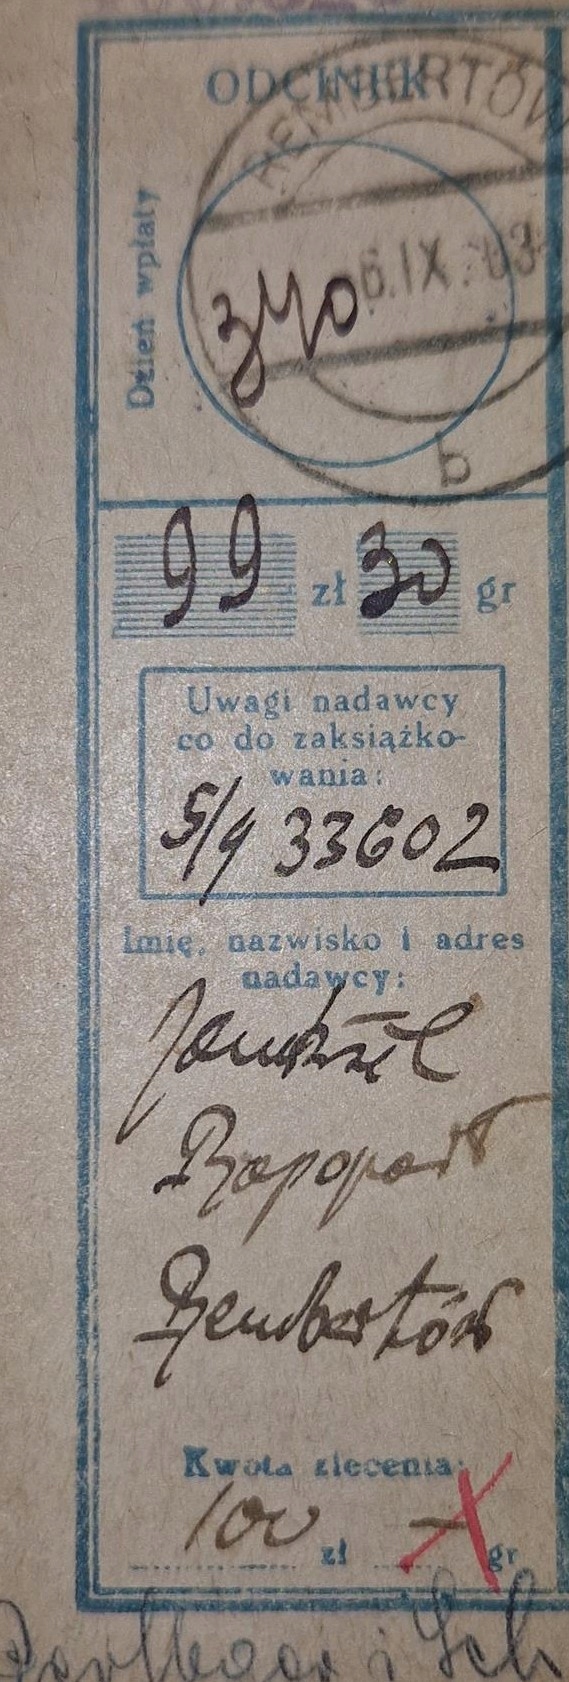 ODCINEK
REMBERTÓW
Dzień wpłaty
6.IX.
340
b
99 zł 30 gr
Uwagi nadawcy
co do zaksiążko-
wania:
5/9 33602
Imię, nazwisko i adres
nadawcy:
Rapoport
Rembertów
Kwota zlecenia:
100 zł — gr